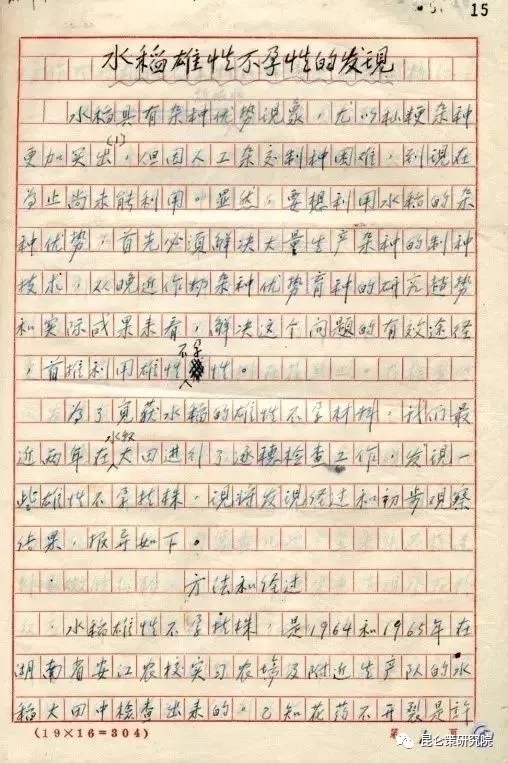 15
水稻雄性不孕性的发现
水稻具有杂种优势现象，尤以籼粳杂种
更加突出(1)，但因人工杂交制种困难，到现在
为止尚未能利用。显然，要想利用水稻的杂
种优势，首先必须解决大量生产杂种的制种
技术，从晚近作物杂种优势育种的研究趋势
和实际成果来看，解决这个问题的有效途径
，首推利用雄性不孕性。
为了觅获水稻的雄性不孕材料，我们最
近两年在水稻大田进行了逐穗检查工作，发现一
些雄性不孕植株，现将发现经过和初步观察
结果，报导如下。
方法和经过
水稻雄性不孕植株，是1964和1965年在
湖南省安江农校实习农场及附近生产队的水
稻大田中检查出来的。已知花药不开裂是许
(19×16=304)
第 页
昆仑策研究院